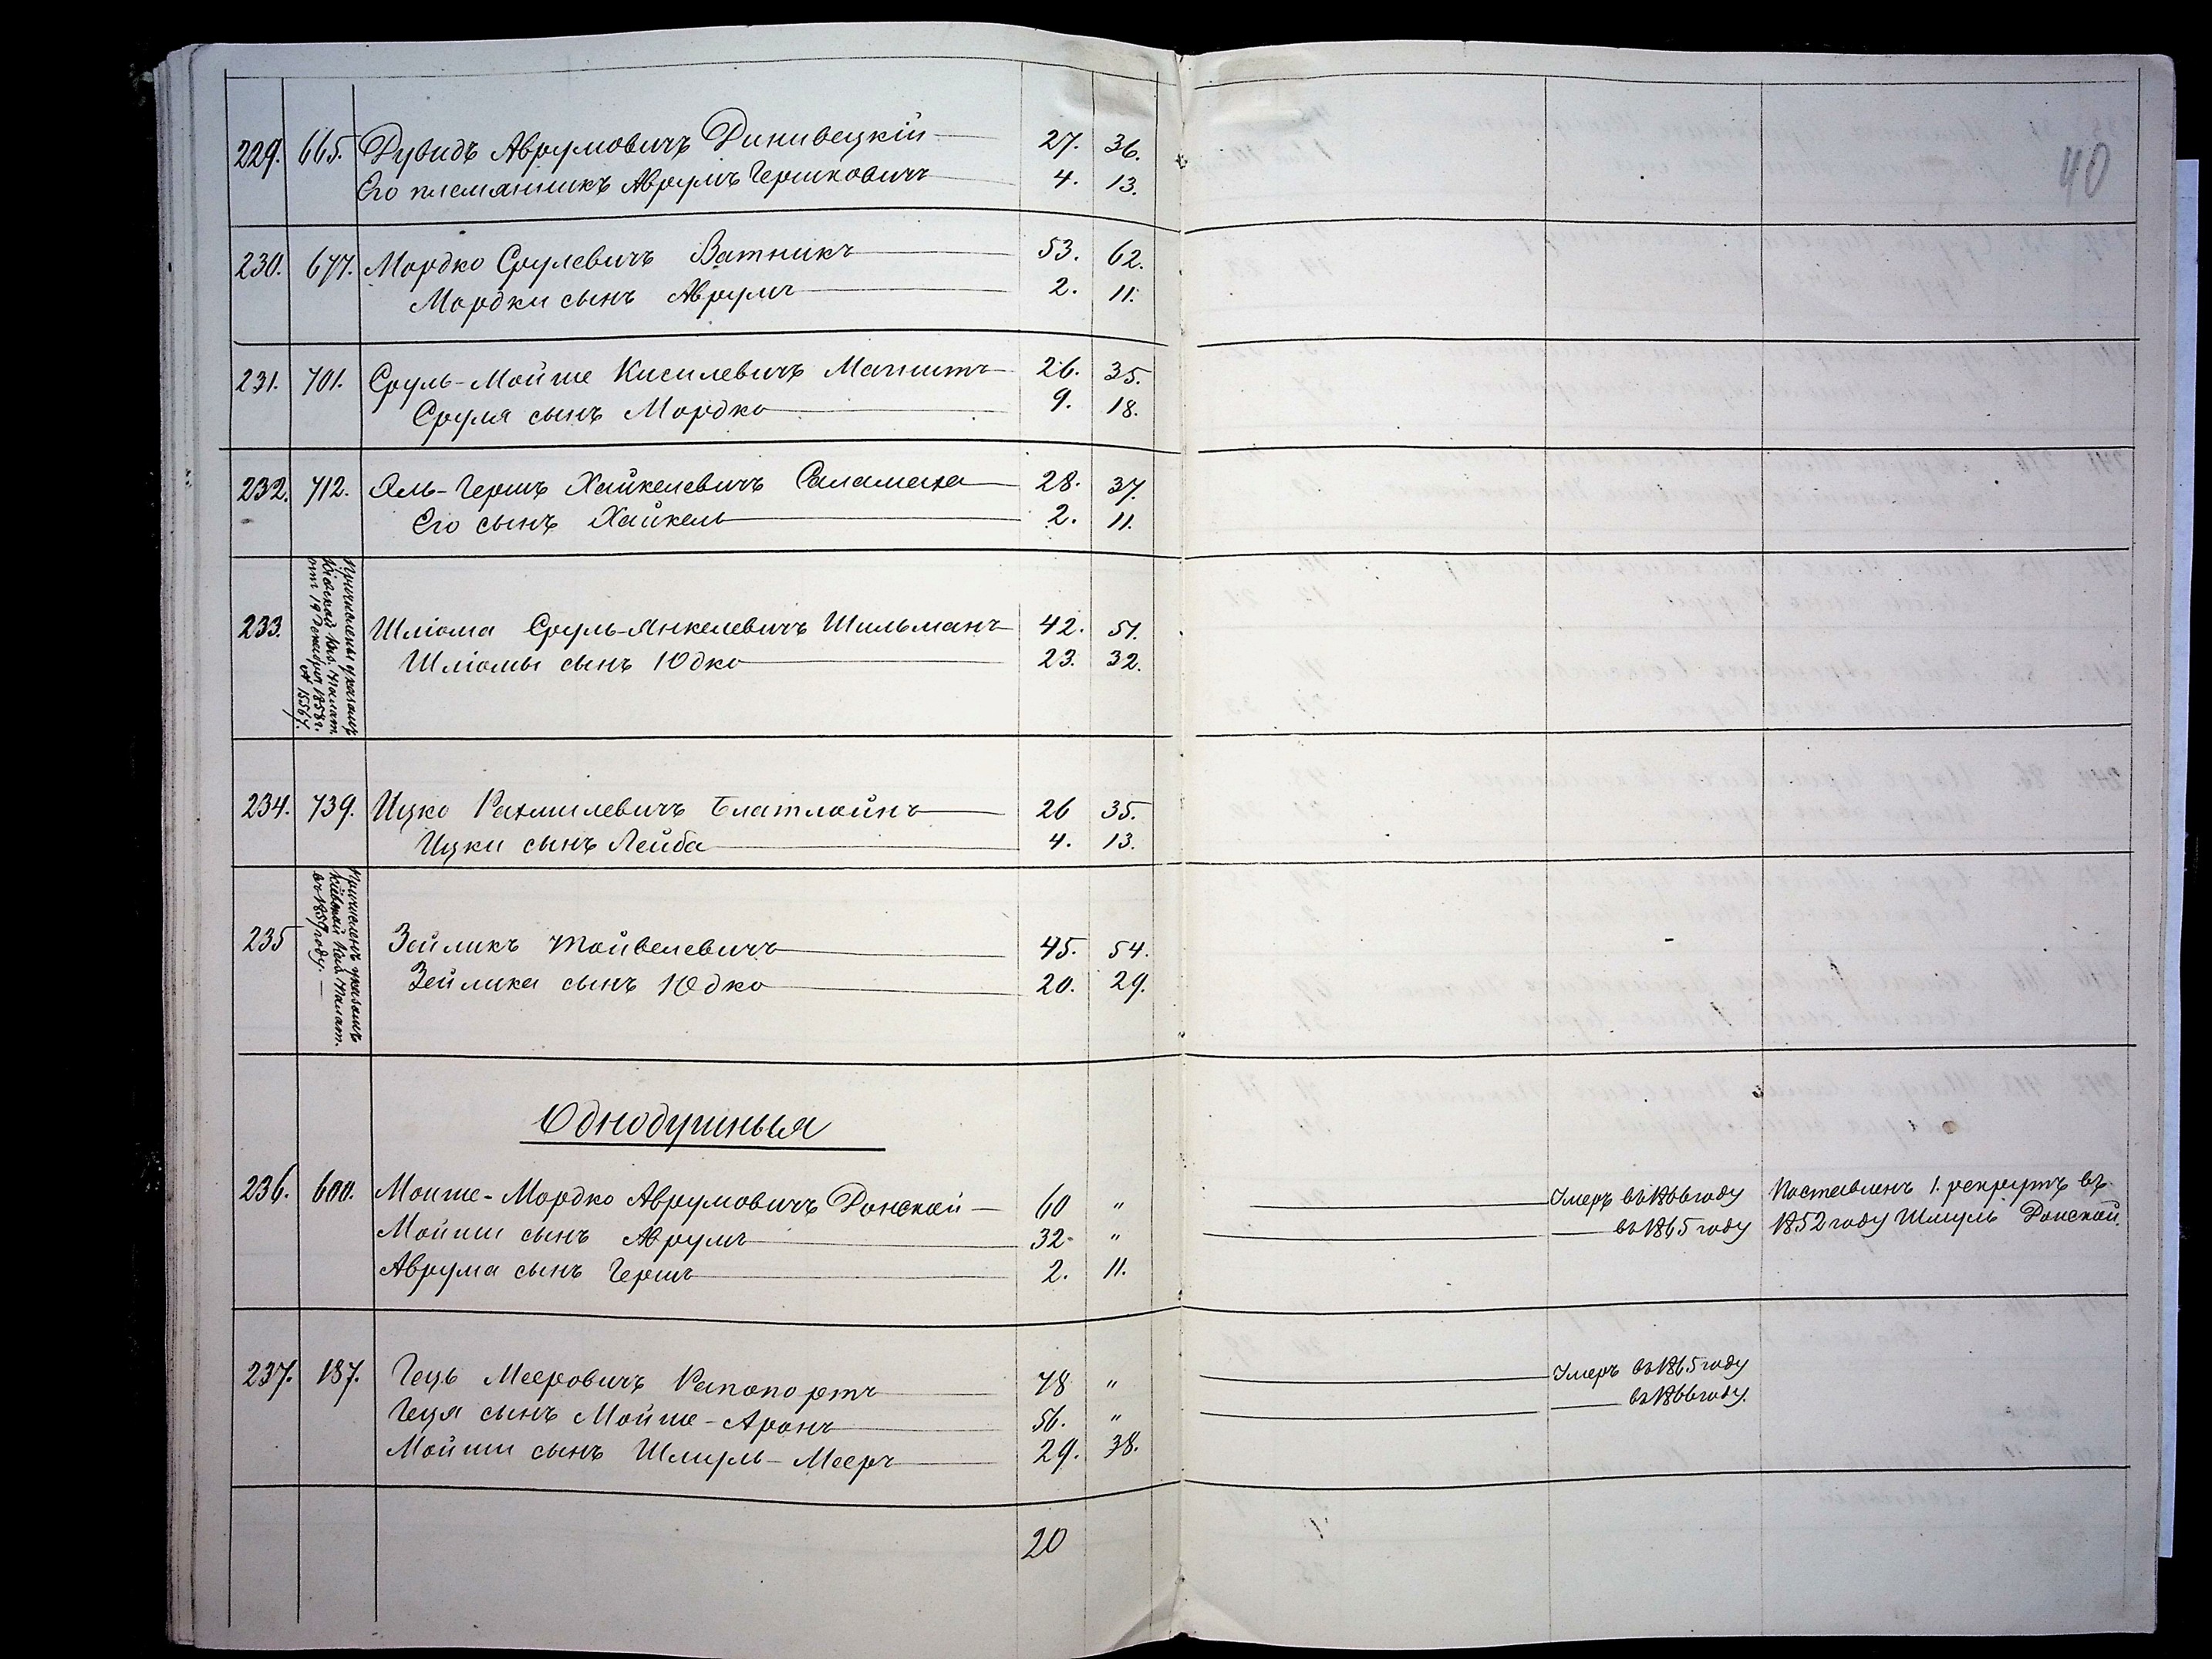 40
229. 665. Дувидъ Аврумовичъ Динивецкій 27. 36.
Его племянникъ Аврумъ Гершковичъ 4. 13.
230. 677. Мордко Срулевичъ Ватникъ 53. 62.
Мордки сынъ Аврумъ 2. 11.
231. 701. Сруль-Мойше Кисилевичъ Магнитъ 26. 35.
Сруля сынъ Мордко 9. 18.
232. 712. Эль-Гершъ Хайкелевичъ Саламаха 28. 37.
Его сынъ Хайкель 2. 11.
Причислены указомъ
Кіевской Каз. Палат.
от 19 Декабря 1858 г.
№ 15567.
233. Шліома Сруль-Янкелевичъ Шильманъ 42. 51.
Шліомы сынъ Юдко 23. 32.
234. 739. Ицко Рахмилевичъ Блатлойнъ 26 35.
Ицки сынъ Лейба 4. 13.
Причисленъ указомъ
Кіевской Каз. Палат.
въ 1859 году.
235 Зейликъ Тойвелевичъ 45. 54.
Зейлика сынъ Юдко 20. 29.
Однодушныя
236. 600. Моише-Мордко Аврумовичъ Донской 60 " Умеръ въ 1866 году Поставленъ 1. рекрутъ въ
Мойши сынъ Аврумъ 32. " въ 1865 году 1852 году Шмуль Донской.
Аврума сынъ Гершъ 2. 11.
237. 187. Гецъ Мееровичъ Рапопортъ 78 " Умеръ въ 1865 году
Геця сынъ Мойше-Аронъ 56. " въ 1866 году.
Мойши сынъ Шмуль-Мееръ 29. 38.
20